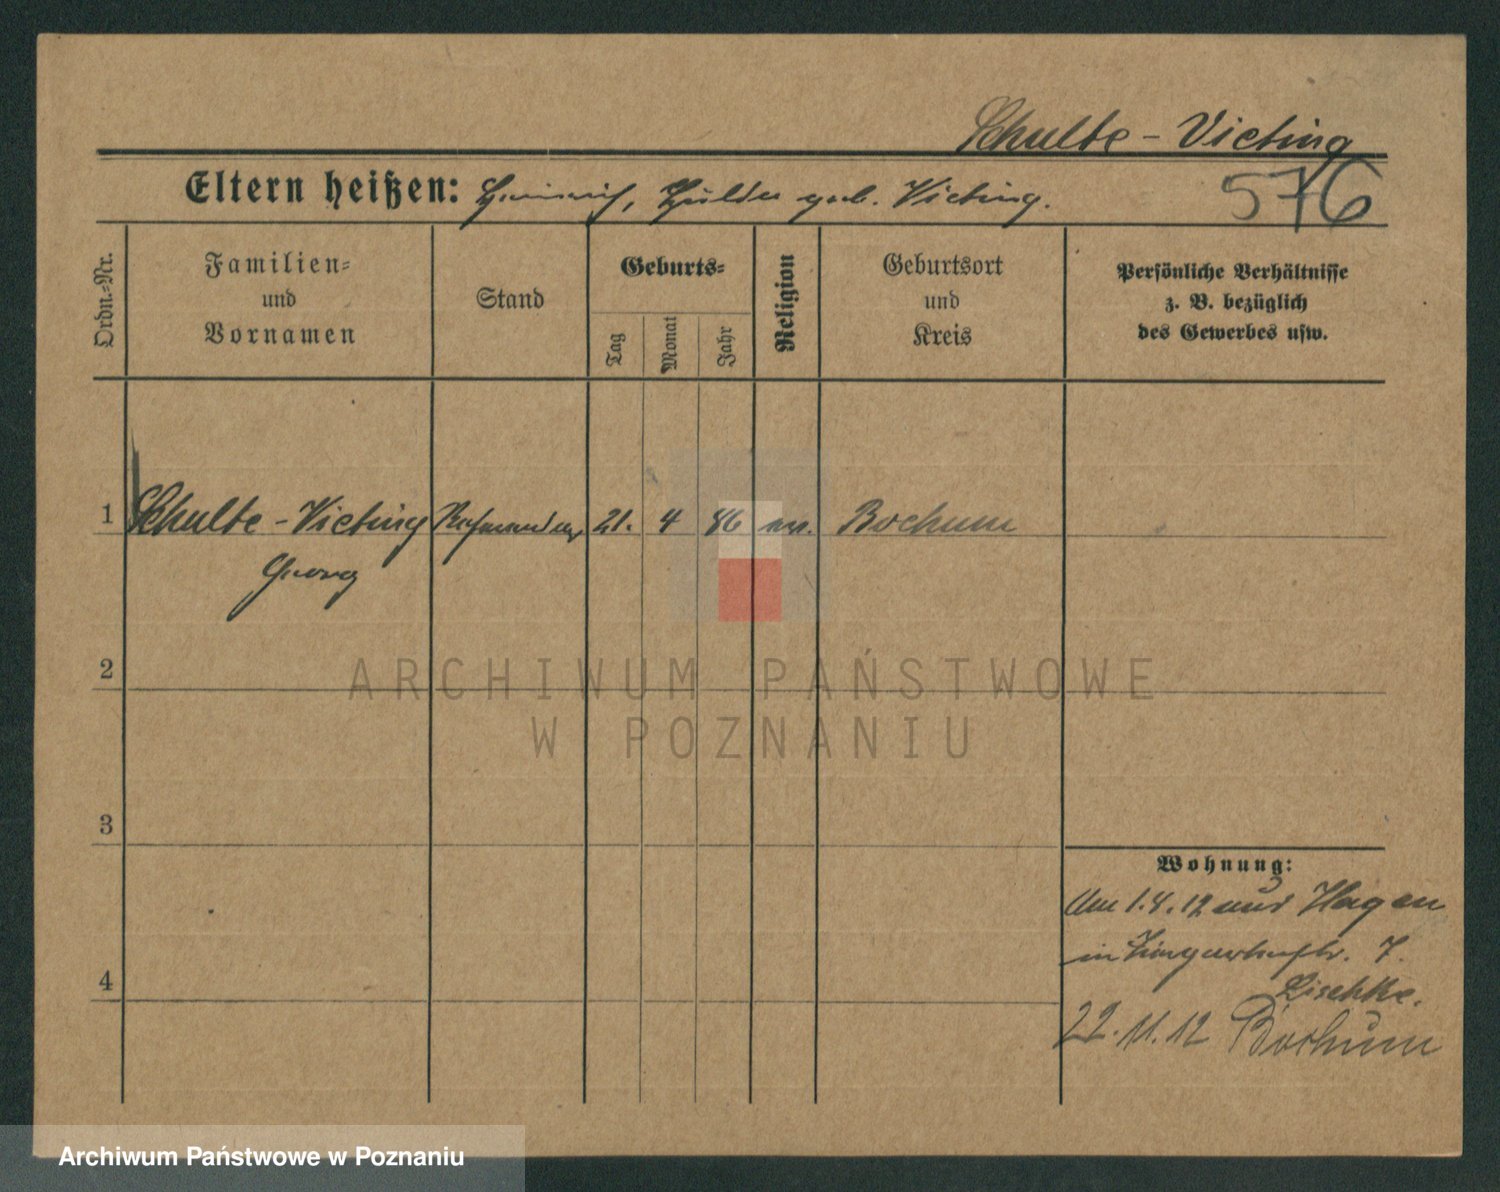 Schulte-Vieting
Eltern heißen: Heinrich, Hulda geb. Vieting.
576
Ordn.-Nr.
Familien-
und
Vornamen
Stand
Geburts-
Tag
Monat
Jahr
Religion
Geburtsort
und
Kreis
Persönliche Verhältnisse
z. B. bezüglich
des Gewerbes usw.
1 Schulte-Vieting Referendar 21. 4 86 ev. Bochum
Georg
2
ARCHIWUM PAŃSTWOWE
W POZNANIU
3
Wohnung:
Am 1.4.12 aus Hagen
in 7.
4
Lischke.
22.11.12 Bochum
Archiwum Państwowe w Poznaniu